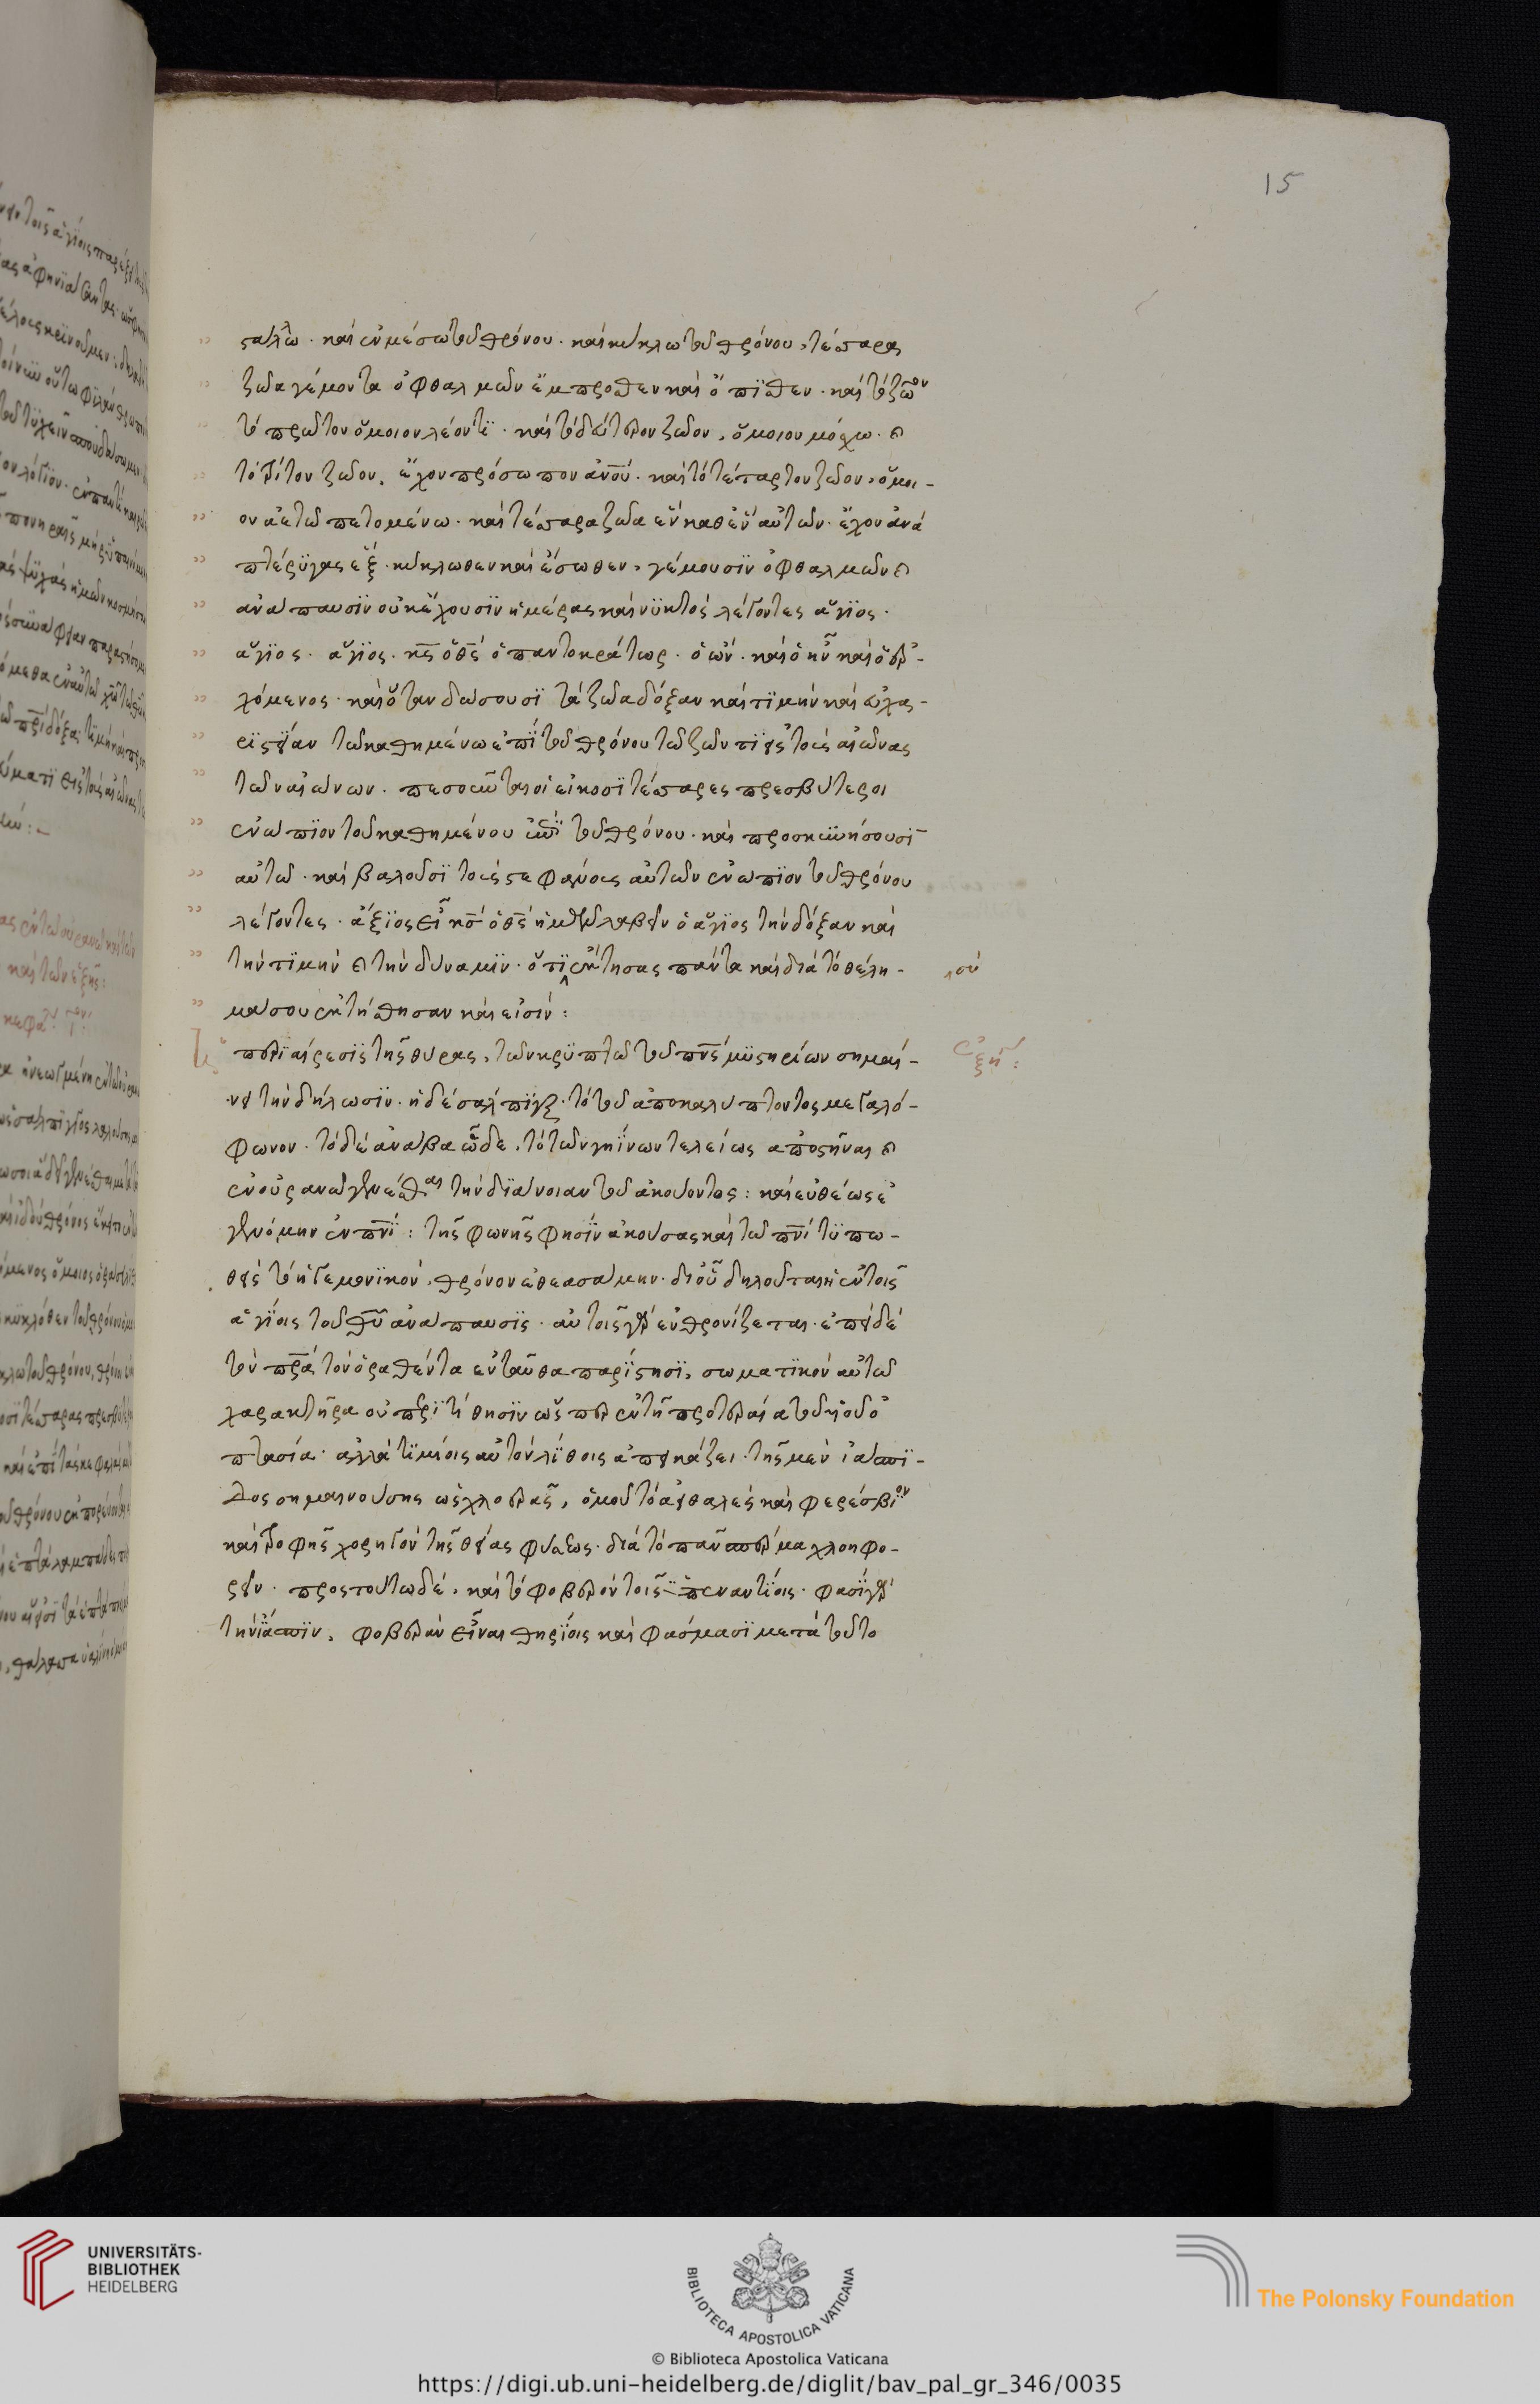 15
σταλλω. καὶ ἐν μέσω τοῦ θρόνου. καὶ κύκλω τοῦ θρόνου, τέσσαρα
ζῶα γέμοντα ὀφθαλμῶν ἔμπροσθεν καὶ ὄπισθεν. καὶ τὸ ζῶον
τὸ πρῶτον ὅμοιον λέοντϊ. καὶ τὸ δεύτερον ζῶον, ὅμοιον μόσχω. καὶ
τὸ τρίτον ζῶον, ἔχον πρόσωπον ἀν̅ο̅υ̅. καὶ τὸ τέταρτον ζῶον, ὅμοι-
ον ἀετῶ πετομένω. καὶ τέσσαρα ζῶα ἓν καθ ἓν αὐτῶν. ἔχον ἀνὰ
πτέρϋγας ἓξ. κυκλωθεν καὶ ἔσωθεν, γέμουσϊν ὀφθαλμῶν καὶ
ανάπαυσϊν οὐκ ἔχουσϊν ἡμέρας καὶ νϋκτὸς λέγοντες ἅγϊος.
ἅγϊος. ἅγϊος. κ̅ς̅ ὁ θ̅ς̅ ὁ παντοκράτωρ. ὁ ὢν. καὶ ὁ ἦν καὶ ὁ ἐρ-
χόμενος. καὶ ὅταν δώσουσϊ τὰ ζῶα δόξαν καὶ τϊμὴν καὶ εὐχα-
ρϊστείαν τῶ καθημένω ἐπϊ τοῦ θρόνου τῶ ζῶντϊ εἰς τοὺς αἰῶνας
τῶν αἰώνων. πεσοῦνται οἱ εἰκοσϊ τέσσαρες πρεσβύτεροι
ἐνώπϊον τοῦ καθημένου ἐπὶ τοῦ θρόνου. καὶ προσκυνήσουσϊ
αὐτῶ. καὶ βαλοῦσϊ τοὺς στεφάνους αὐτῶν ἐνώπϊον τοῦ θρόνου
λέγοντες. ἄξϊος εἶ κ̅ς̅ ὁ θ̅ς̅ ἡμῶν λαβεῖν ὁ ἅγϊος τὴν δόξαν καὶ
τὴν τϊμὴν καὶ τὴν δύναμϊν. ὅτϊ ἔκτησας πάντα καὶ διὰ τὸ θέλη-
σὺ
μά σου ἐκτήσθησαν καὶ εἰσὶν:
περϊαίρεσϊς τῆς θύρας, τῶν κρϋπτῶν τοῦ π̅ν̅ς̅ μϋστηρίων σημαί-
νει τὴν δήλωσϊν. ἡ δὲ σάλπϊγξ. τὸ τοῦ ἀποκαλύπτοντος μεγαλό-
φωνον. τὸ δὲ ἀνάβα ὧδε, τὸ τῶν γηΐνων τελείως ἀποστῆναι καὶ
τὴν δϊάνοιαν τοῦ ἀκούοντος: καὶ εὐθέως ἐ
γενόμην ἐν π̅ν̅ϊ: τῆς φωνῆς φησϊν ἀκούσας καὶ τῶ π̅ν̅ϊ τϋπω-
θεὶς τὸ ἡγεμονϊκόν, θρόνον ἐθεασάμην. δι οὗ δηλοῦται ἡ ἐν τοῖς
ἁγΐοις τοῦ θ̅υ̅ ἀνάπαυσϊς. αὐτοῖς γὰρ ἐνθρονίζεται. ἐπεὶ δὲ
τὸν π̅ρ̅α̅ τὸν ὁραθέντα ἐνταῦθα παρίστησϊ, σωματϊκὸν αὐτῶ
χαρακτῆρα οὐ περϊτίθησϊν ὥσπερ ἐν τῆ προτέραι α τοῦ υἱοῦ ὀ
πτασία. ἀλλὰ τϊμίοις αὐτὸν λϊθοις ἀπεικάζει. τῆς μὲν ἰάσπϊ-
δος σημαινούσης ὡς χλοερᾶς, ὁμοῦ τὸ ἀειθαλὲς καὶ φερέσβιον
καὶ τροφῆς χορηγὸν τῆς θείας φύσεως. διὰ τὸ πᾶν σπέρμα χλοηφο-
ρεῖν. προς τούτω δὲ, καὶ τὸ φοβερὸν τοῖς ὑπεναντϊοις. φασϊ γὰρ
τὴν ἴασπϊν, φοβερὰν εἶναι θηρϊοις καὶ φάσμασϊ μετὰ τοῦτο
UNIVERSITÄTS-
BIBLIOTHEK
HEIDELBERG
BIBLIOTECA APOSTOLICA VATICANA
The Polonsky Foundation
© Biblioteca Apostolica Vaticana
https://digi.ub.uni-heidelberg.de/diglit/bav_pal_gr_346/0035